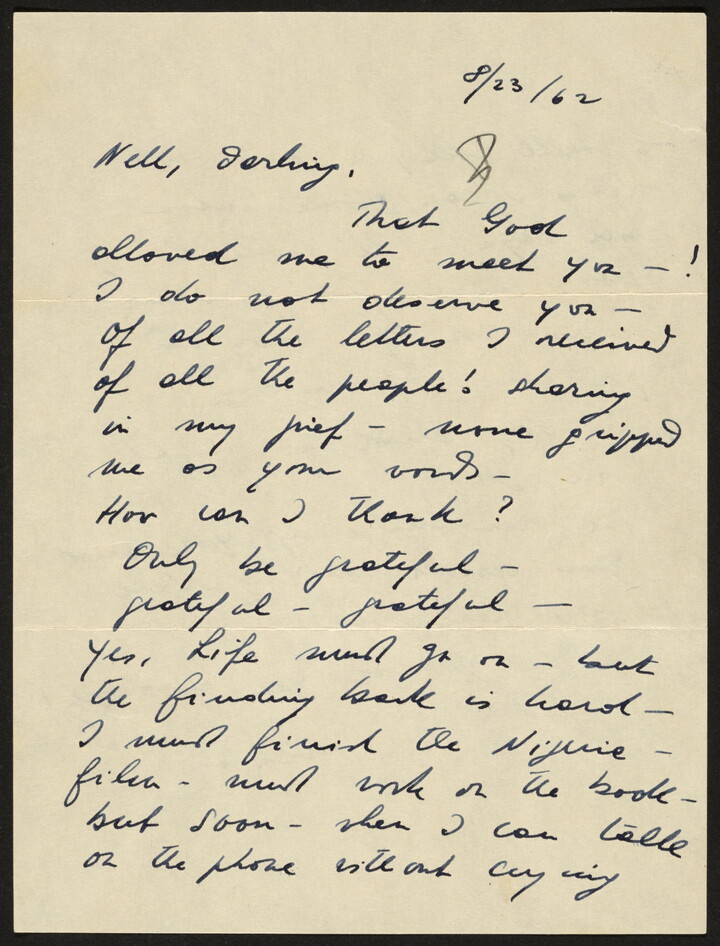 8/23/62
Nell, Darling,
That God
allowed me to meet you – !
I do not deserve you –
Of all the letters I received
of all the people! sharing
in my grief – none gripped
me as your words –
How can I thank ?
Only be grateful –
grateful – grateful –
Yes, Life must go on – but
the finding back is hard –
I must finish the Nigeria –
film – must work on the book –
but soon – when I can talk
on the phone without crying